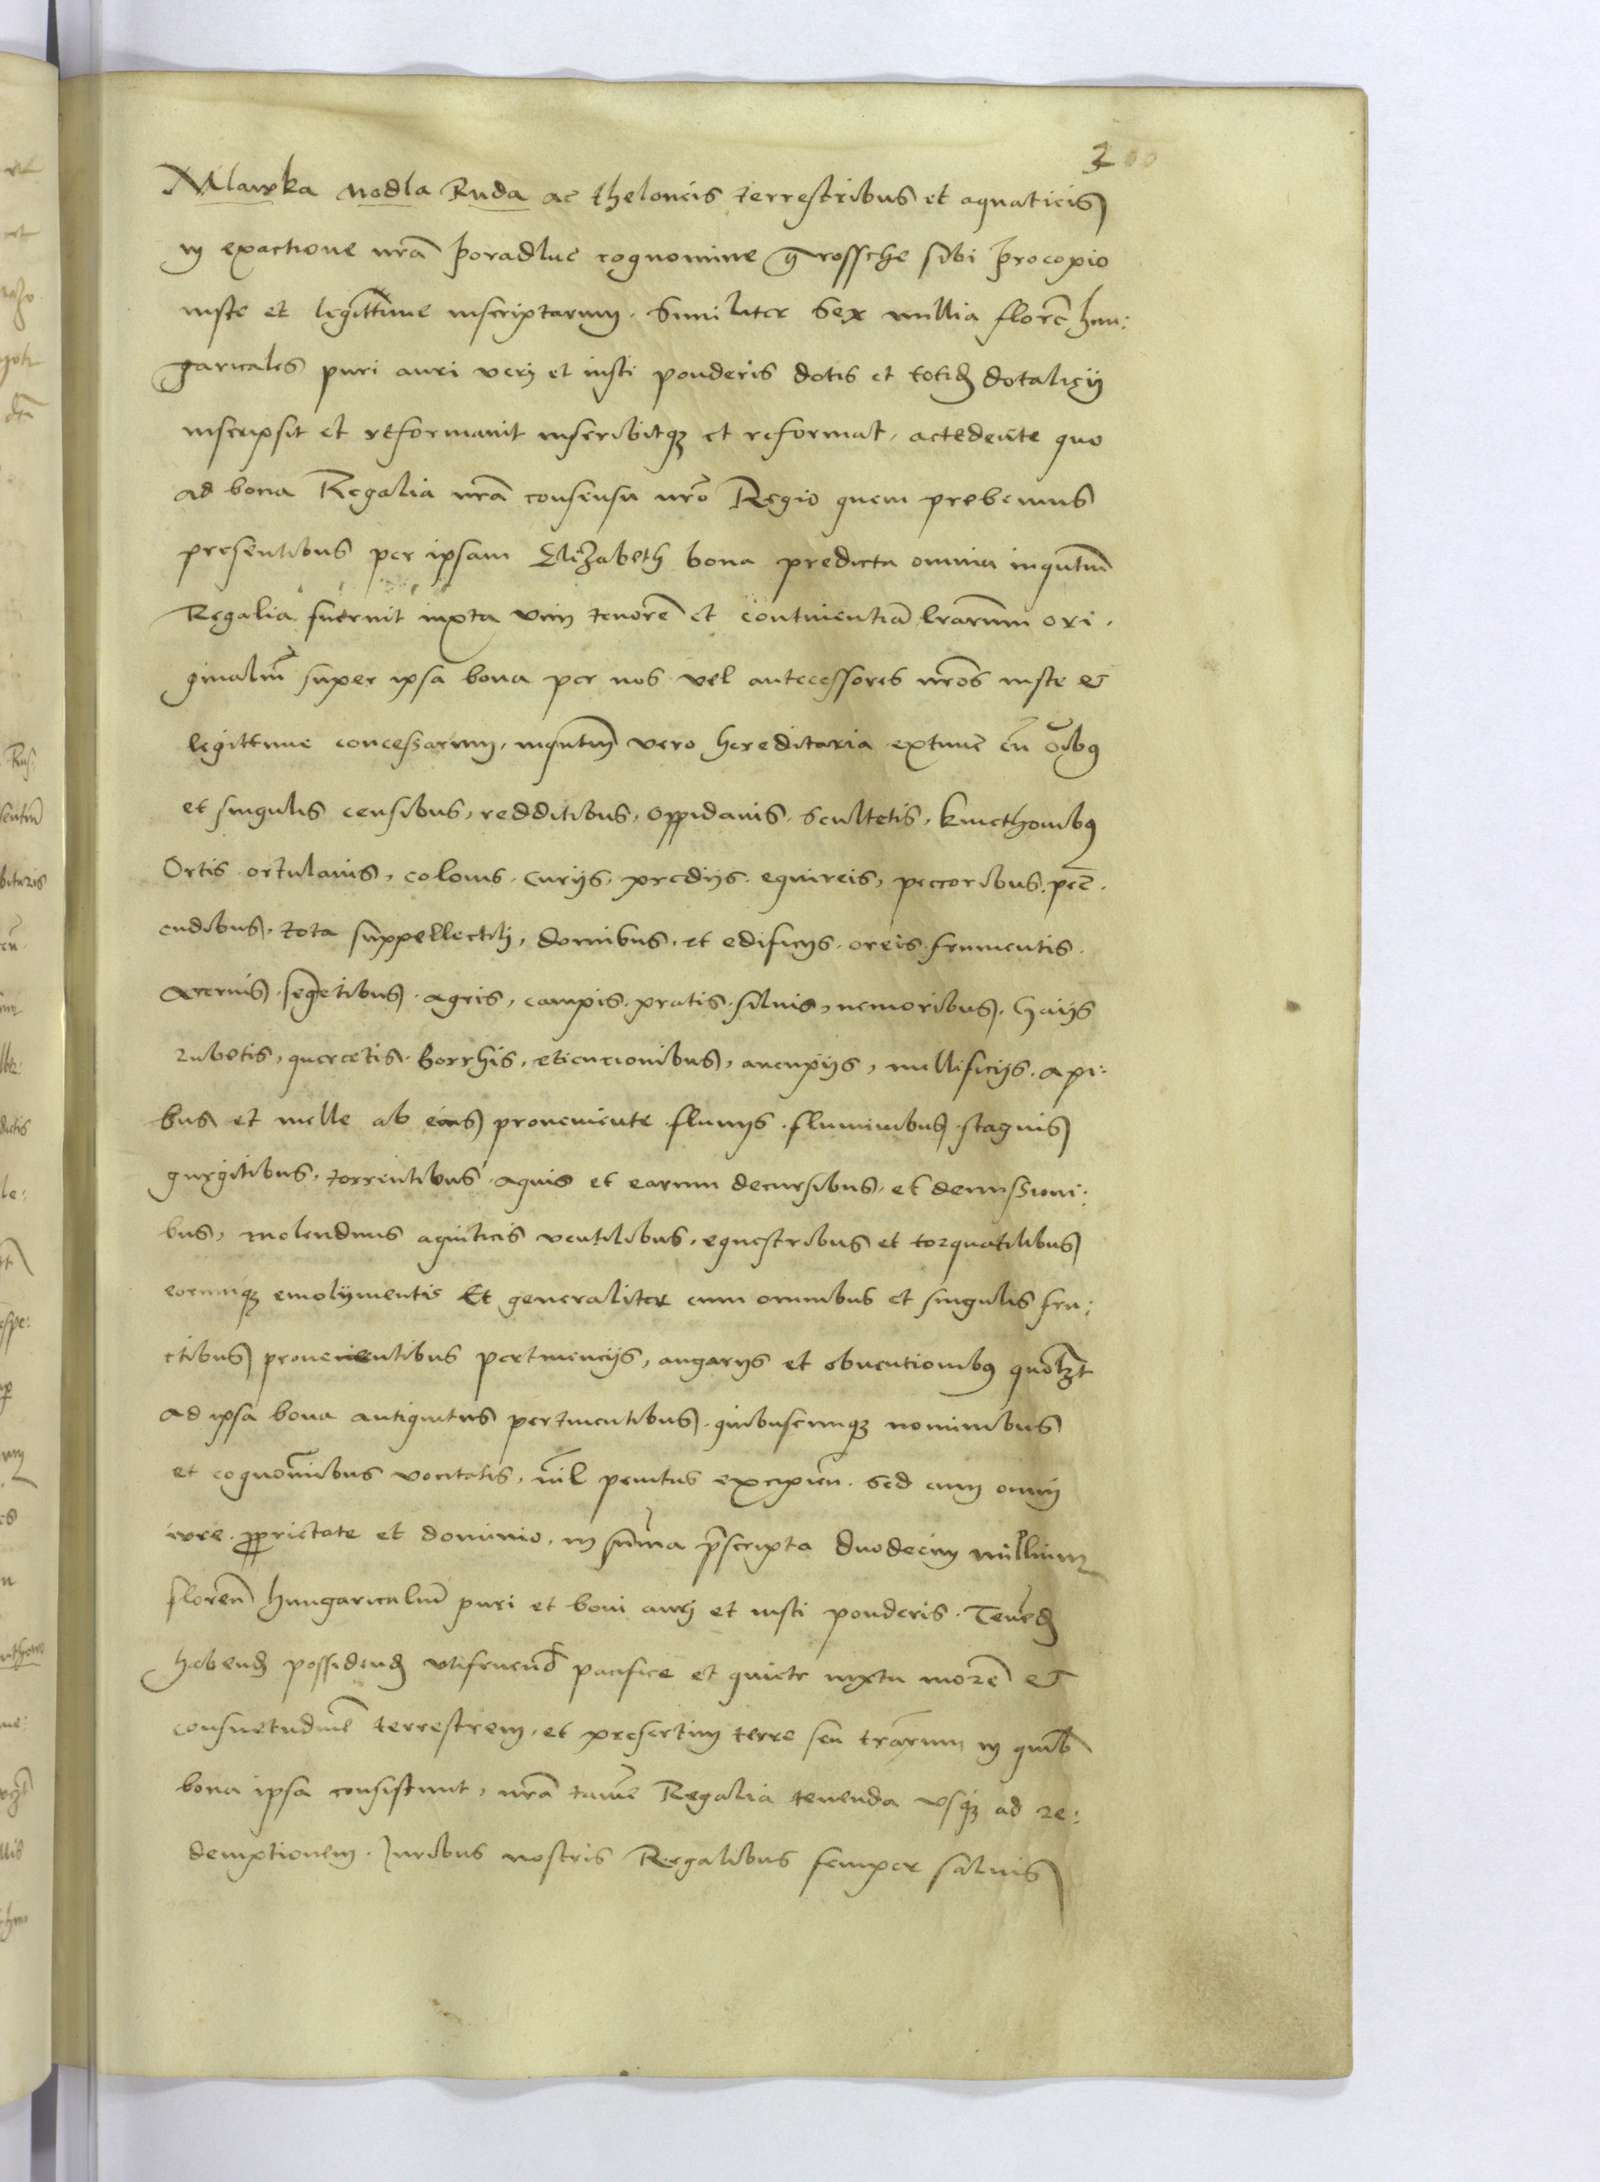 3
Mlawka Modla Ruda ac theloneis terrestribus et aquaticis
in exactione nrã poradlne cognomine grossche sibi procopio
iuste et legittime inscriptarum. Similiter Sex millia florẽ hun:
garicales puri auri verj et iusti ponderis dotis et totiđ dotalicij
inscripsit et reformauit inscribitqз et reformat. accedente quo
ad bona Regalia nrã consensu nrõ Regio quem prebemus
presentibus per ipsam Elizabeth bona predicta omnia inqutm̃
Regalia fuerint iuxta vim tenorẽ et continentiã lrarum ori.
ginaliũ super ipsa bona per nos vel antecessores nrõs iuste et
legittime concessarum, inqutm̃ vero hereditaria extunc cũ oĩbꝰ
et singulis censibus, redditibus, oppidanis. Scultetis, kmethonibꝰ
Ortis ortulanis, colonis. Curijs. predijs. equireis, peccoribus. pec̃.
cudibus. tota suppellectilj, domibus. et edificijs. oreis frumentis.
Acervis. segetibus. agris, campis. pratis. siluis, nemoribus. Gaijs
rubetis, quercetis. Borrhis, venationibus, aucupijs, mellificijs. api:
bus et melle ab eius proveniente. fluvijs. fluminibus. stagnis
gurgitibus. torrentibus. aquis et earum decursibus. et demissioni:
bus, molendinis aquiticis ventilibus, equestribus et torquatilibus
eorumqз emolymentis Et generaliter cum omnibus et singulis fru:
ctibus provenientibus pertinencijs, angarijs et obventionibꝰ quolзt
ad ipsa bona antiquitus pertinentibus. quibuscunqз nominibus
et cognomĩbus vocitatis, nil penitus excipien̄. Sed cum omni
iure. proprietate et dominio. in sum̃a p̃scripta duodecim millium
florenũ hungaricaliũ puri et boni aurj et iusti ponderis. Tenenđ
habenđ possidenđ vtifruenđ pacifice et quiete iuxta morẽ et
consuetudinẽ terrestrem. et presertim terre seu trarum in quib̃
bona ipsa consistunt, nrã tamẽ Regalia tenenda vsqз ad re:
demptionem. Iuribus nostris Regalibus semper saluis